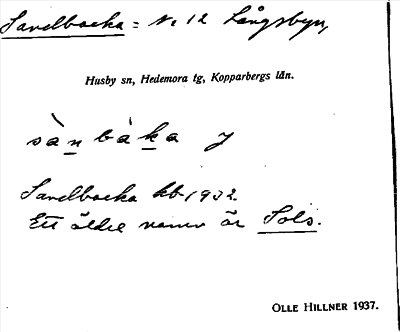 Sandbacka = Nr 12 Långsbyn,
Husby sn, Hedemora tg, Kopparbergs län.
sànbàka J
Sandbacka kb. 1932.
Ett äldre namn är Sols.
OLLE HILLNER 1937.